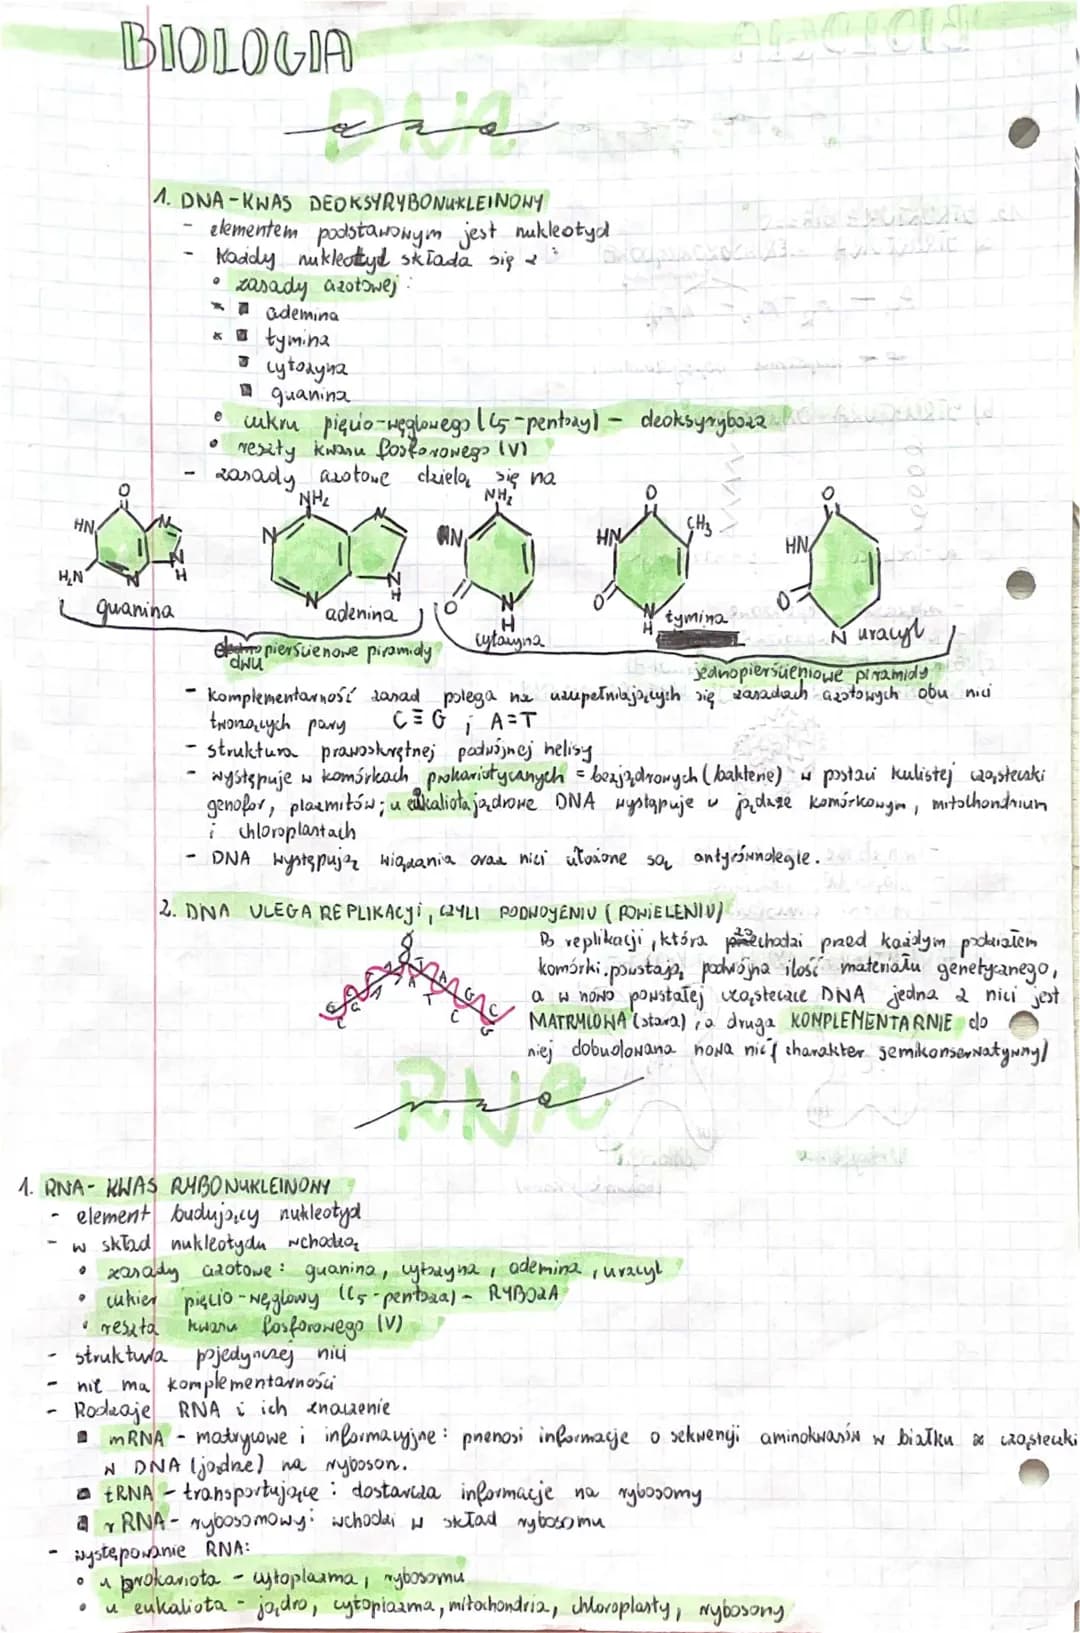 BIOLOGIA
DNA
1. DNA - KWAS DEOKSYRYBONUKLEINOWY
- elementem podstawowym jest nukleotyd
- Każdy nukleotyd składa się z:
• zasady azotowej:
* ademina
* tymina
cytozyna
guanina
• cukru pięcio-węglowego (C5-pentozy) - deoksyryboza
• reszty kwasu fosforowego (V)
- zasady azotowe dzielą się na
O HN H2N N N N H guanina
NH2 N N N N H adenina
NH2 N O N H cytozyna
O HN CH3 O N H tymina
O HN O N uracyl
dwu pierścienowe piramidy
jednopierścieniowe piramidy
- komplementarność zasad polega na uzupełniających się zasadach azotowych obu nici
tworzących pary C≡G ; A=T
- struktura prawoskrętnej podwójnej helisy
- występuje w komórkach prokariotycznych = bezjądrowych (bakterie) w postaci kulistej cząsteczki
genofor, plazmitów; u eukaliota jądrowe DNA występuje w jądrze komórkowym, mitochondrium
i chloroplastach
- DNA występują wiązania oraz nici ułożone są antyrównolegle.
2. DNA ULEGA REPLIKACJI, CZYLI PODWOJENIU (POWIELENIU)
Po replikacji, która zachodzi przed każdym podziałem
komórki, powstają podwójna ilość materiału genetycznego,
a w nowo powstałej cząsteczce DNA jedna z nici jest
MATRYCOWA (stara), a druga KOMPLEMENTARNIE do
niej dobudowana nowa nić (charakter semikonserwatywny)
RNA
1. RNA - KWAS RYBONUKLEINOWY
- element budujący nukleotyd
- w skład nukleotydu wchodzą
• zasady azotowe: guanina, cytozyna, ademina, uracyl
• cukier pięcio-węglowy (C5-pentoza) - RYBOZA
• reszta kwasu fosforowego (V)
- struktura pojedynczej nici
- nie ma komplementarności
- Rodzaje RNA i ich znaczenie
mRNA - matrycowe i informacyjne: przenosi informacje o sekwencji aminokwasów w białku z cząsteczki
w DNA (jądrze) na rybosom.
tRNA - transportujące: dostarcza informacje na rybosomy
rRNA - rybosomowy: wchodzi w skład rybosomu
- występowanie RNA:
• u prokariota - cytoplazma, rybosomu
• u eukaliota - jądro, cytoplazma, mitochondria, chloroplasty, rybosomy